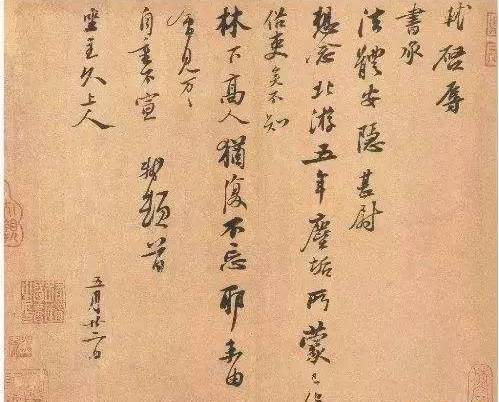 軾啓辱
書承
法體安隱甚尉
想念北游五年塵垢所蒙已
俗吏矣不知
林下高人猶復不忘耶未由
會見万〻
自重不宣 軾頓首
坐主久上人
五月廿二日